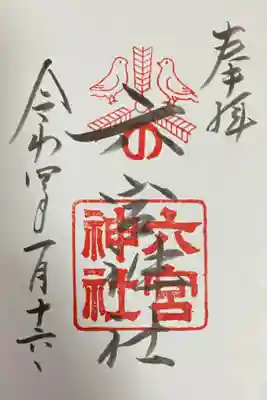 奉拝
六の宮神社
六宮神社
令和四年一月十六日